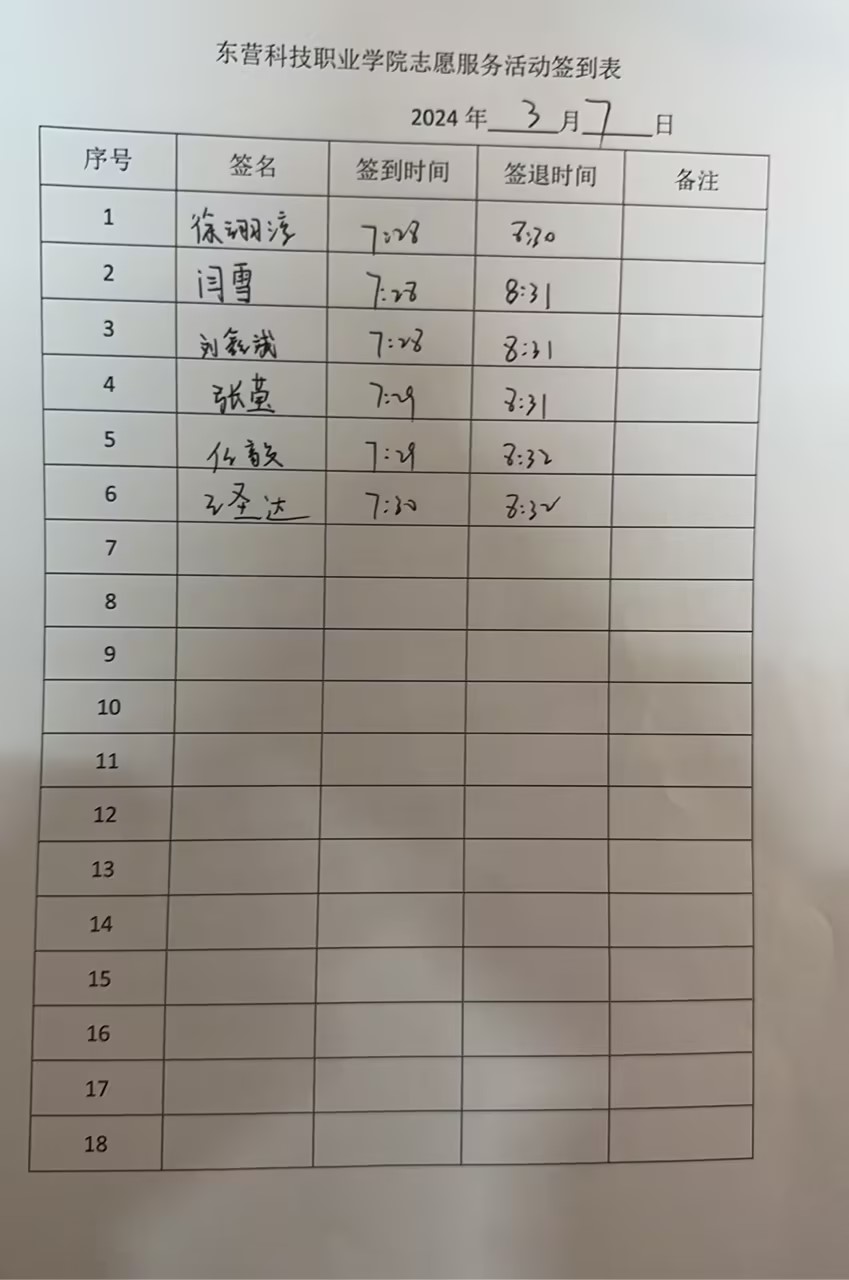 东营科技职业学院志愿服务活动签到表
2024 年 3 月 7 日
序号 签名 签到时间 签退时间 备注
1 徐翊淳 7:28 8:30
2 闫雪 7:28 8:31
3 7:28 8:31
4 张萱 7:29 8:31
5 7:29 8:32
6 王圣达 7:30 8:32
7
8
9
10
11
12
13
14
15
16
17
18